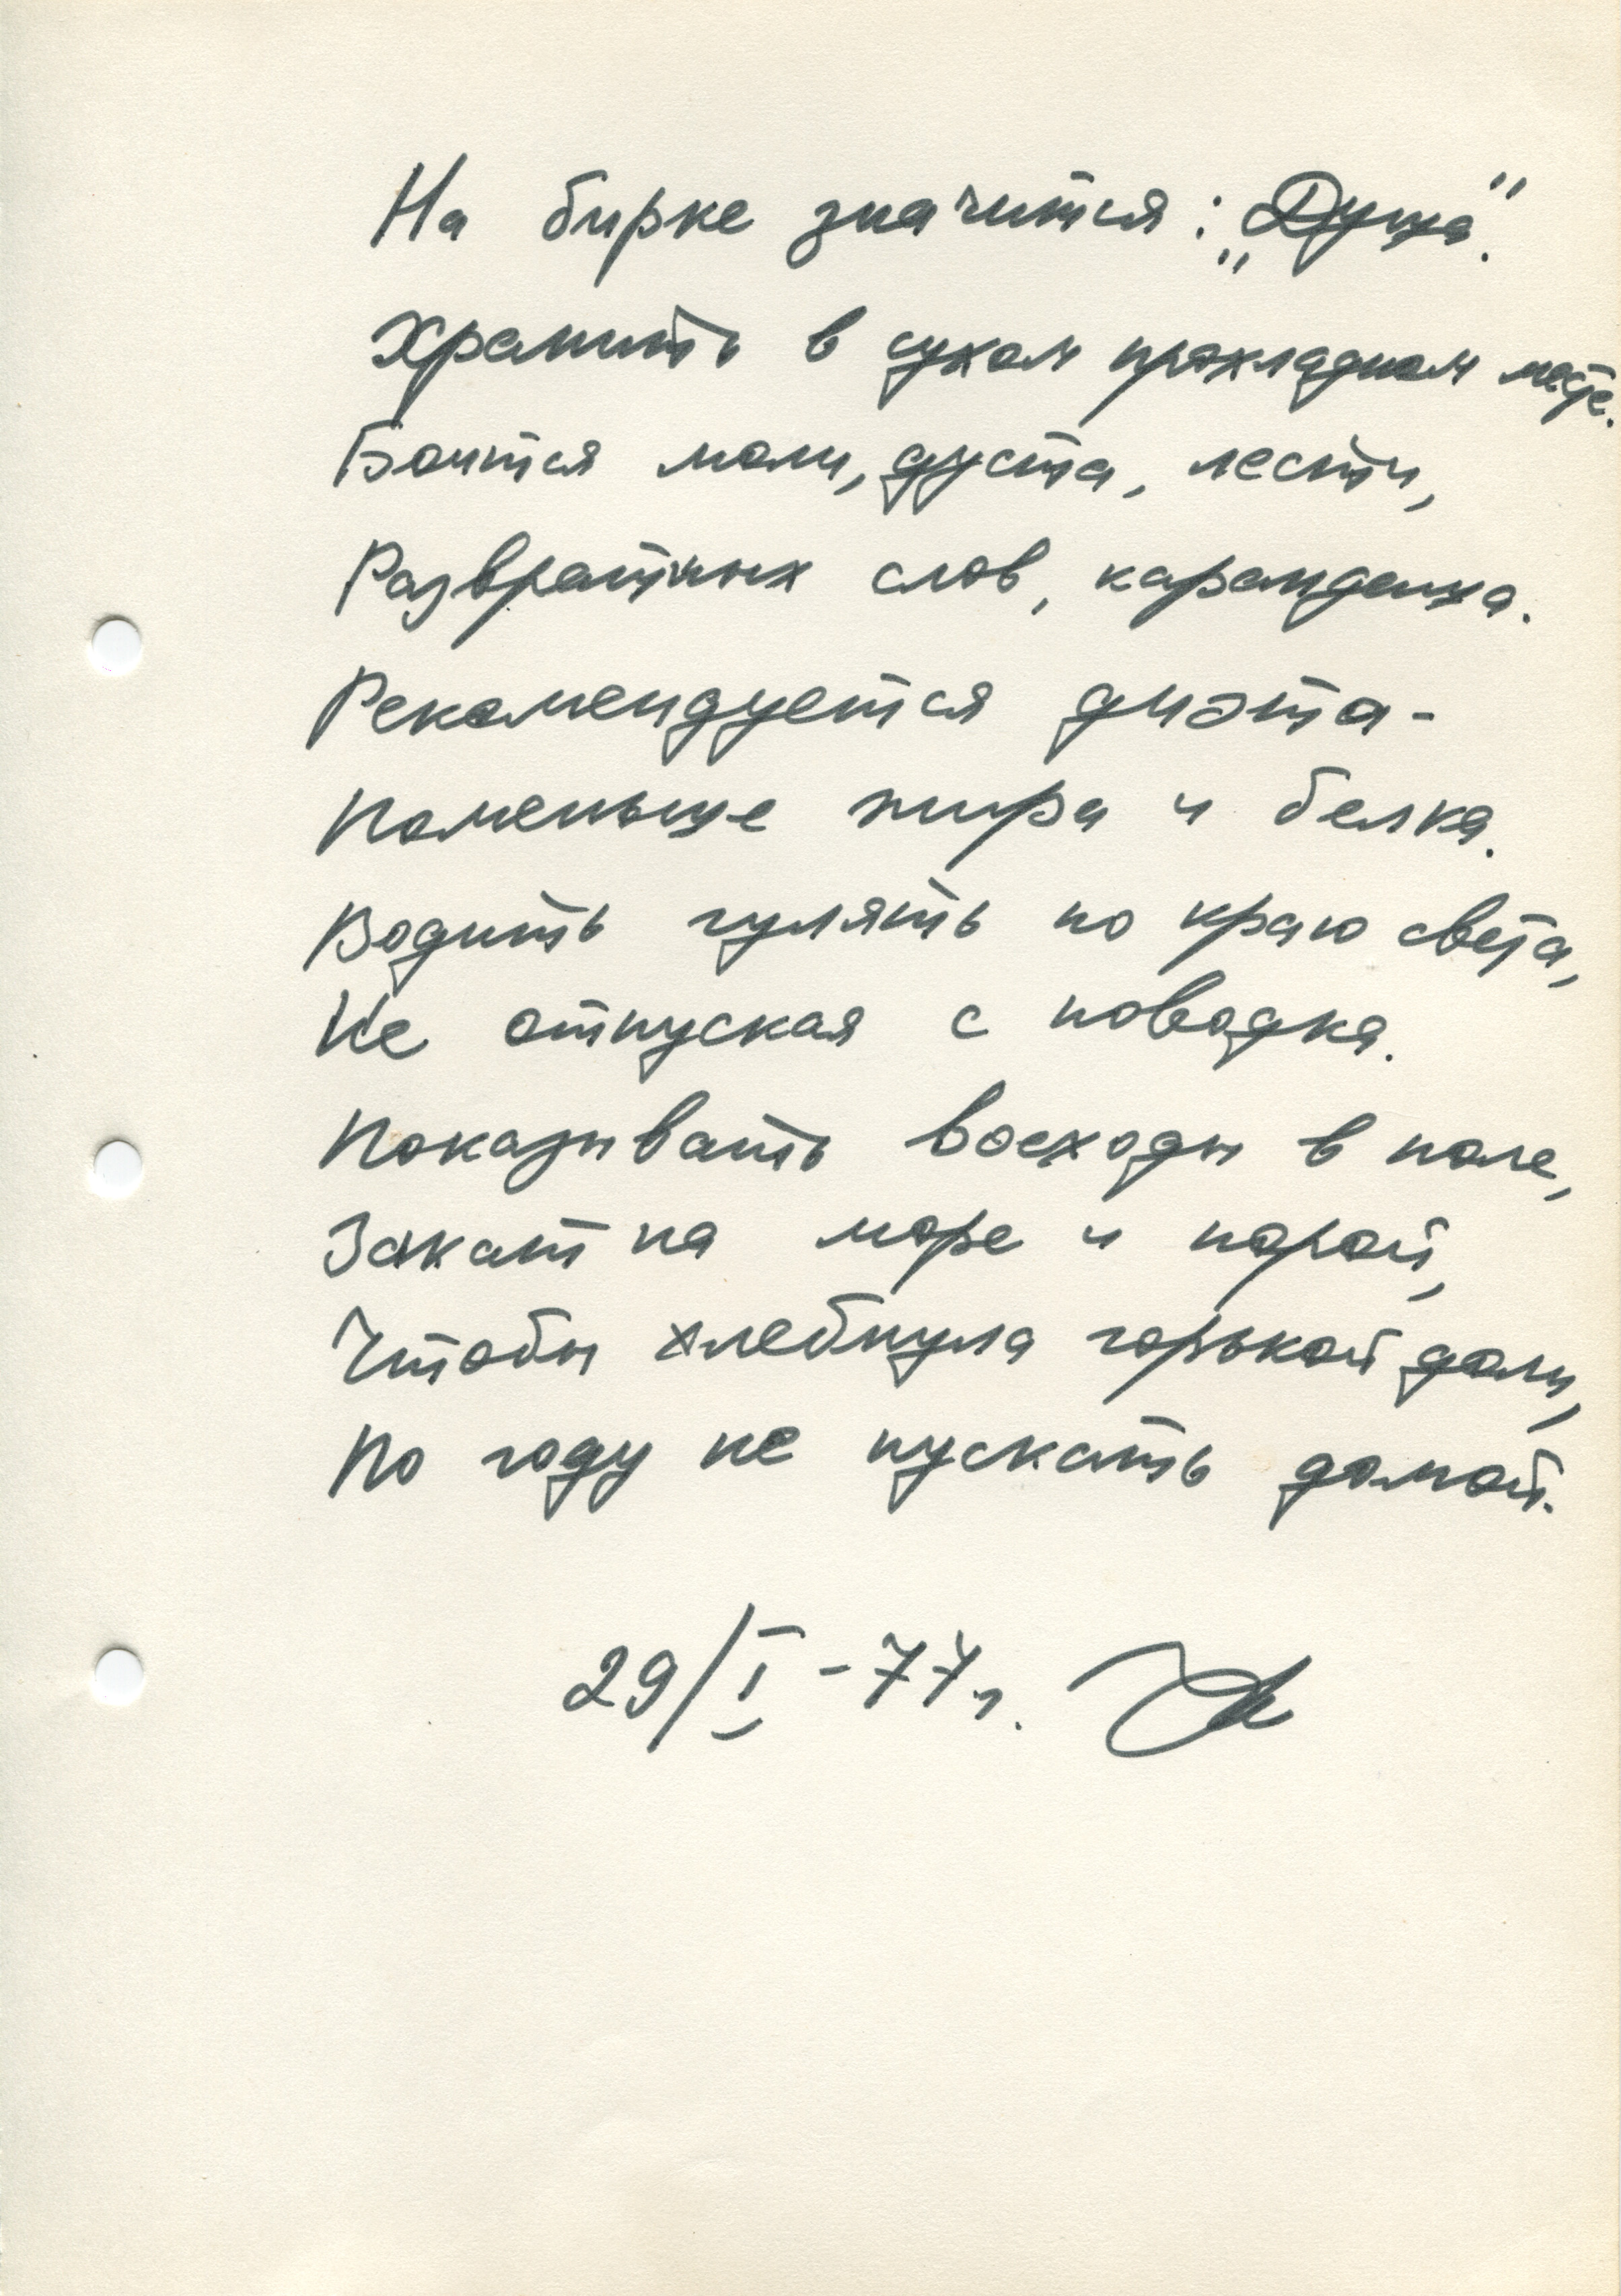 На бирке значится: „Душа".
Хранить в сухом прохладном месте.
Боится моли, дуста, лести,
Развратных слов, карандаша.
Рекомендуется диэта-
Поменьше жира и белка.
Водить гулять по краю света,
Не отпуская с поводка.
Показывать восходы в поле,
Закат на море и порой,
Чтобы хлебнула горькой доли,
По году не пускать домой.
29/I-77г.